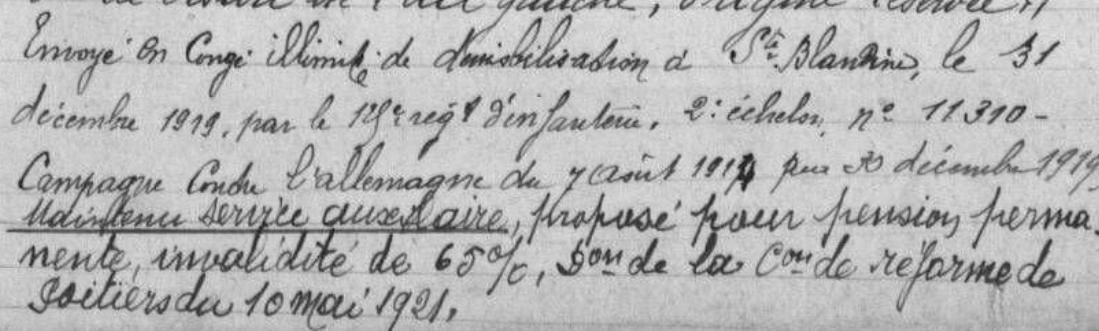 gauche, origine
Envoyé en Congé illimité de démobilisation à Ste Blandine, le 31
décembre 1919, par le régt d'infanterie, 2e échelon, n° 11310 -
Campagne Contre l'allemagne du 7 août 1914 au 30 décembre 1919
Maintenu service auxiliaire, proposé pour pension perma-
nente, invalidité de 65%, Don de la Con de réforme de
Poitiers du 10 mai 1921.